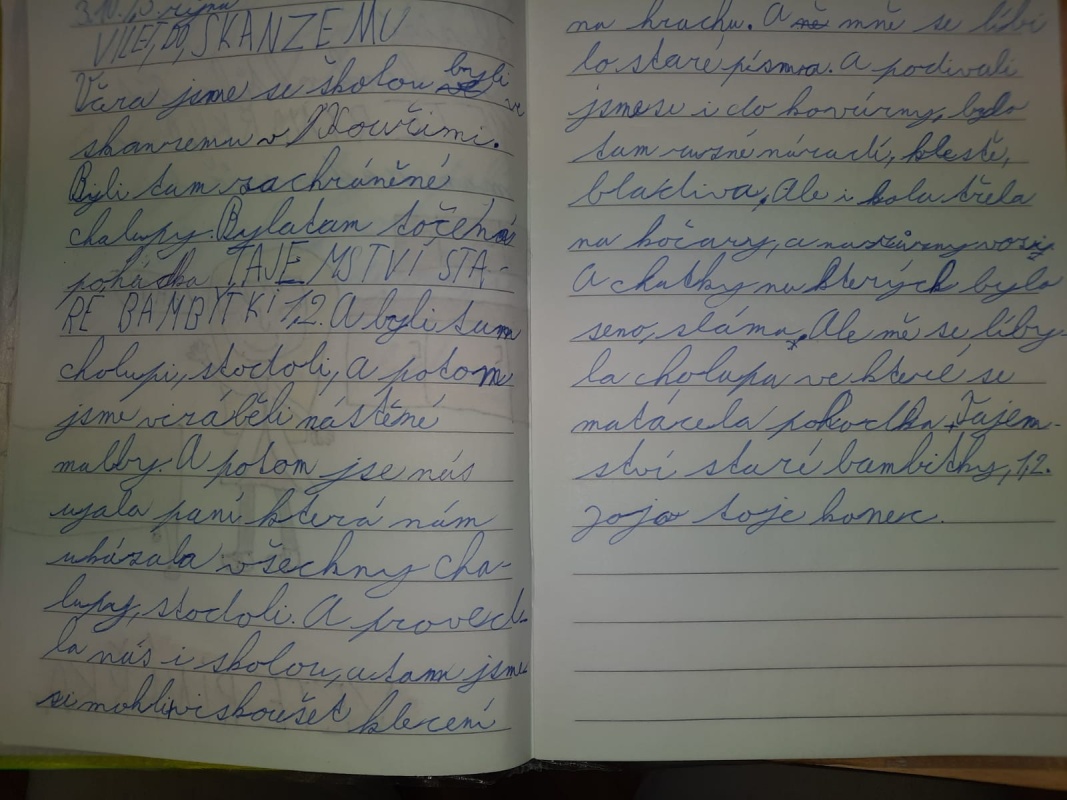 VILET, DO, SKANZEMU
Včera jsme se školou byli ve
skanzemu v Kouřimi.
Byli tam zachráněné
chalupy. Bylatam točená
pohádka TAJEMSTVÍ STA-
RÉ BAMBYTKI 1,2. A byli tam
chalupi, stodoli, a potom
jsme viráběli nástěné
malby. A potom jse nás
ujala paní která nám
ukázala všechny cha-
lupy, stodoli. A proved-
la nás i školou, a tam jsme
si mohli viskoušet klecení
na hrachu. A mně se líbi
lo staré písmo. A podivali
jsmese i do kovárny, bylo
tam ruzné náradí, klestě,
kladiva, Ale i kola třeba
na kočary, a
A chatky na kterých bylo
seno, sláma. Ale mě se líby-
la chalupa ve které se
natáčela pohodka Tajem-
ství staré bambitky, 1,2.
jojo toje konec.